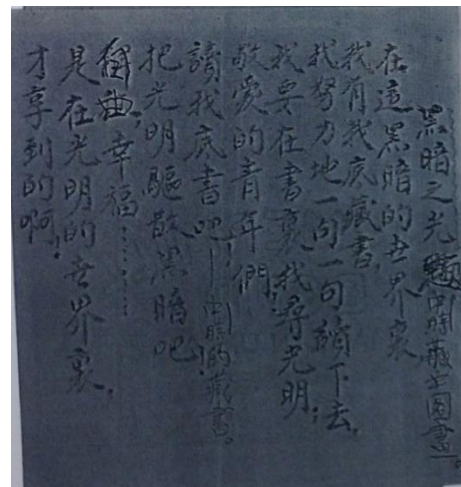 黑暗之光 題中時藏書
在這黑暗的世界裏
我有我底藏書,
我努力地一句一句讀下去,
我要在書裏找尋光明;
敬愛的青年們,
請我底書吧!——中時的藏書。
把光明驅散黑暗吧!
幸福………
是在光明的世界裏,
才享到的啊!